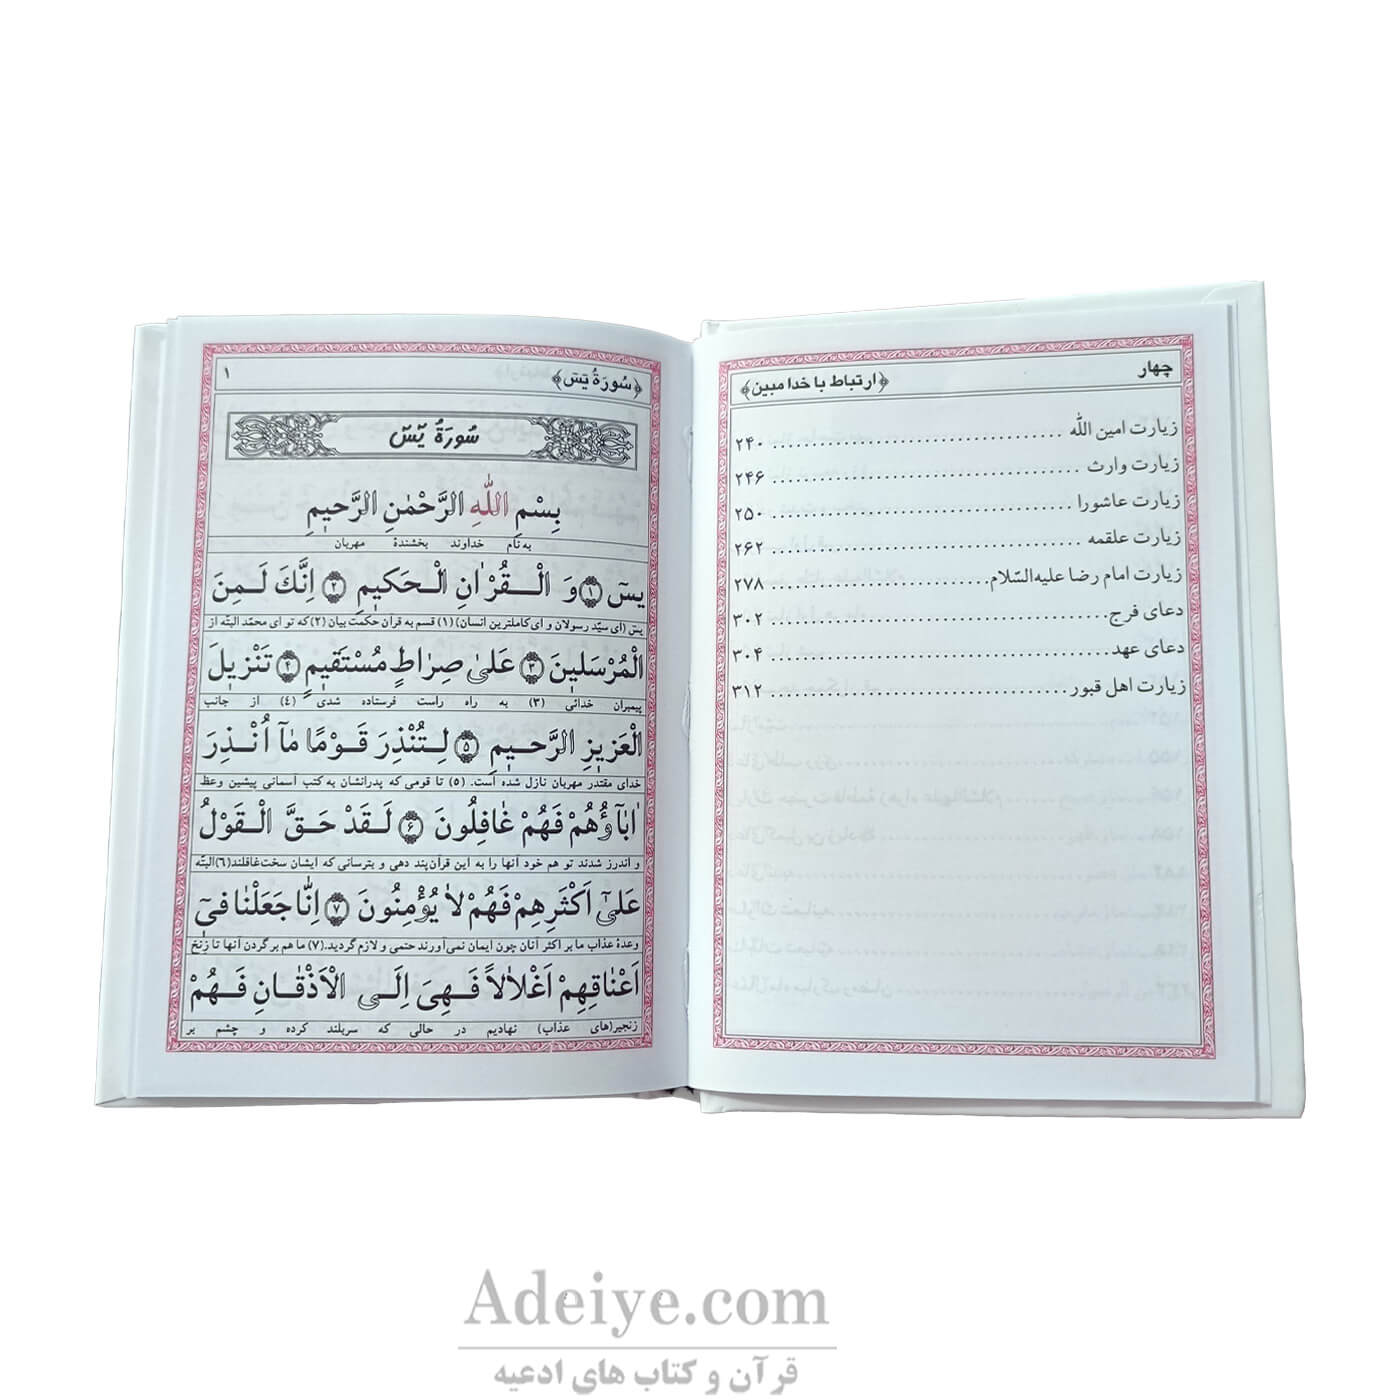 چهار ﴿ارتباط با خدا مبین﴾
زیارت امین الله ............................ ۲۴۰
زیارت وارث ............................ ۲۴۶
زیارت عاشورا ............................ ۲۵۰
زیارت علقمه ............................ ۲۶۲
زیارت امام رضا علیه‌السّلام ................... ۲۷۸
دعای فرج ............................ ۳۰۲
دعای عهد ............................ ۳۰۴
زیارت اهل قبور ............................ ۳۱۲
﴿سُورَةُ یٓسٓ﴾ ۱
سُورَةُ یٓسٓ
بِسْمِ اللّٰهِ الرَّحْمٰنِ الرَّحیٖمِ
به نام خداوند بخشندهٔ مهربان
یسٓ ﴿۱﴾ وَ الْقُرْاٰنِ الْحَکیٖمِ ﴿۲﴾ اِنَّکَ لَمِنَ
یسٓ (ای سیّد رسولان و ای کاملترین انسان) (۱) قسم به قرآن حکمت بیان (۲) که تو ای محمّد البتّه از
الْمُرْسَلیٖنَ ﴿۳﴾ عَلیٰ صِرٰاطٍ مُسْتَقیٖمٍ ﴿۴﴾ تَنْزیٖلَ
پیمبران خدائی (۳) به راه راست فرستاده شدی (۴) از جانب
الْعَزیٖزِ الرَّحیٖمِ ﴿۵﴾ لِتُنْذِرَ قَوْمًا مٰٓا اُنْذِرَ
خدای مقتدر مهربان نازل شده است. (۵) تا قومی که پدرانشان به کتب آسمانی پیشین وعظ
اٰبٰٓاؤُهُمْ فَهُمْ غٰافِلُونَ ﴿۶﴾ لَقَدْ حَقَّ الْقَوْلُ
و اندرز شدند تو هم خود آنها را به این قرآن پند دهی و بترسانی که ایشان سخت غافلند (۶) البتّه
عَلیٰٓ اَکْثَرِهِمْ فَهُمْ لاٰ یُؤْمِنُونَ ﴿۷﴾ اِنّٰا جَعَلْنٰا فیٖٓ
وعدهٔ عذاب ما بر اکثر آنان چون ایمان نمی‌آورند حتمی و لازم گردید. (۷) ما هم بر گردن آنها تا زنخ
اَعْنٰاقِهِمْ اَغْلاٰلاً فَهِیَ اِلَی الْاَذْقٰانِ فَهُمْ
زنجیر(های عذاب) نهادیم در حالی که سربلند کرده و چشم بر
Adeiye.com
قرآن و کتاب های ادعیه